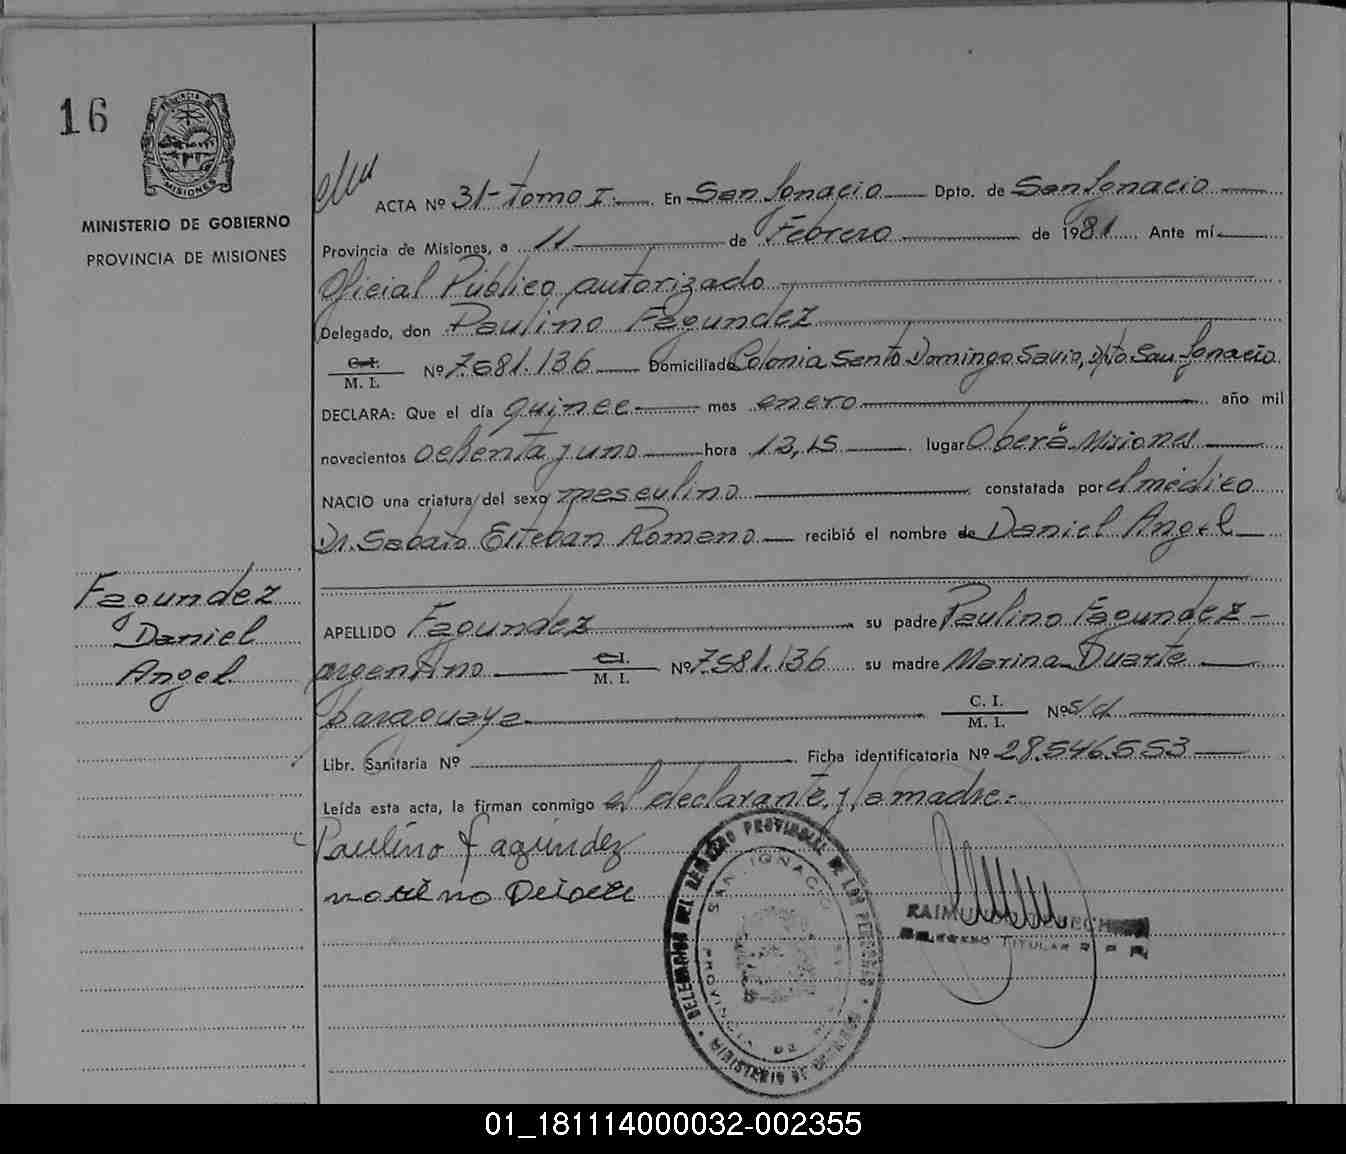 16
PROVINCIA DE
MISIONES
MINISTERIO DE GOBIERNO
PROVINCIA DE MISIONES
Fagundez
Daniel
Angel
ACTA Nº 31-tomo I. En San Ignacio Dpto. de San Ignacio
Provincia de Misiones, a 11 de Febrero de 1981 Ante mí
Oficial Público autorizado
Delegado, don Paulino Fagundez
C.I. M. I. Nº 7.581.136 Domiciliado Colonia Santo Domingo Savio, Dpto San Ignacio
DECLARA: Que el día quince mes enero año mil
novecientos ochenta y uno hora 13,15 lugar Oberá Misiones
NACIO una criatura del sexo masculino constatada por el médico
Dr. Sabato Esteban Romano recibió el nombre de Daniel Angel
APELLIDO Fagundez su padre Paulino Fagundez
argentino C.I. M. I. Nº 7581.136 su madre Marina Duarte
paraguaya C. I. M. I. Nº s/d
Libr. Sanitaria Nº Ficha identificatoria Nº 28.546.553
Leída esta acta, la firman conmigo el declarante, y la madre.-
Paulino Fagundez
DELEGACION DEL REGISTRO PROVINCIAL DE LAS PERSONAS
SAN IGNACIO
PROVINCIA DE
TITULAR
01_181114000032-002355